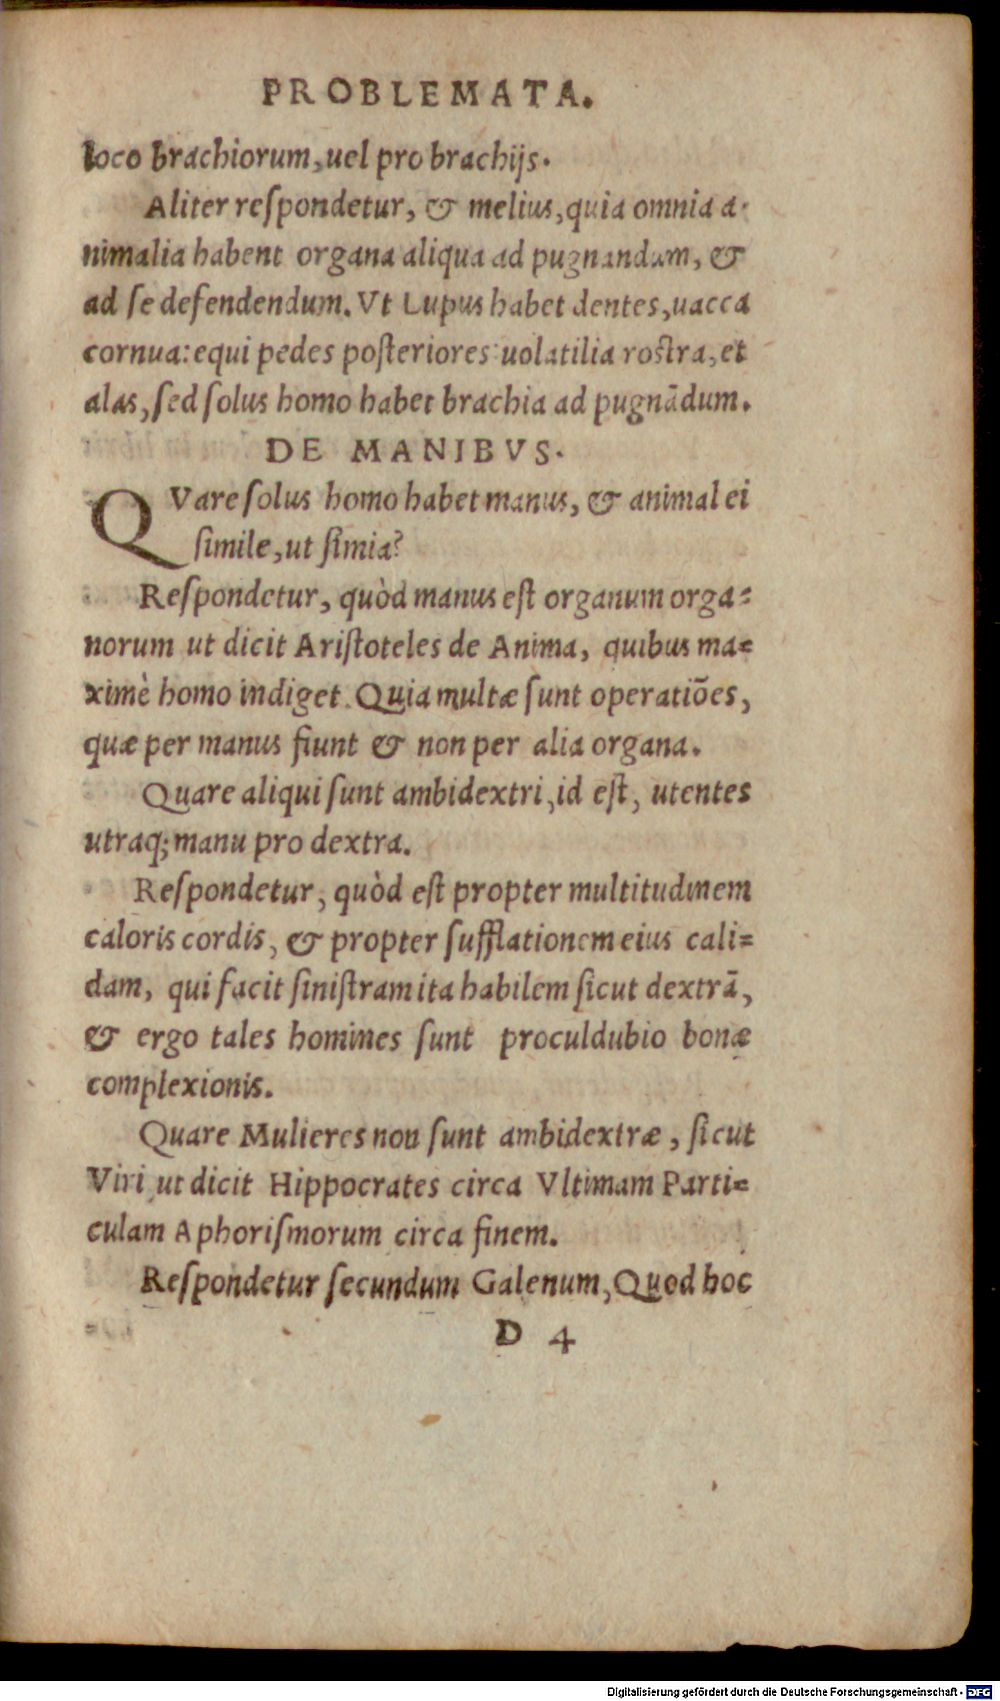 PROBLEMATA.
loco brachiorum, uel pro brachijs.
Aliter reſpondetur, & melius, quia omnia a-
nimalia habent organa aliqua ad pugnandum, &
ad ſe defendendum. Vt Lupus habet dentes, uacca
cornua: equi pedes poſteriores: uolatilia roſtra, et
alas, ſed ſolus homo habet brachia ad pugnādum.
DE MANIBVS.
QVare ſolus homo habet manus, & animal ei
ſimile, ut ſimia?
Reſpondetur, quòd manus eſt organum orga=
norum ut dicit Ariſtoteles de Anima, quibus ma=
ximè homo indiget. Quia multæ ſunt operatiōes,
quæ per manus fiunt & non per alia organa.
Quare aliqui ſunt ambidextri, id eſt, utentes
utraq; manu pro dextra.
Reſpondetur, quòd eſt propter multitudinem
caloris cordis, & propter ſufflationem eius cali=
dam, qui facit ſiniſtram ita habilem ſicut dextrā,
& ergo tales homines ſunt proculdubio bonæ
complexionis.
Quare Mulieres non ſunt ambidextræ, ſicut
Viri ut dicit Hippocrates circa Vltimam Parti=
culam Aphoriſmorum circa finem.
Reſpondetur ſecundum Galenum, Quod hoc
D 4
Digitalisierung gefördert durch die Deutsche Forschungsgemeinschaft - DFG